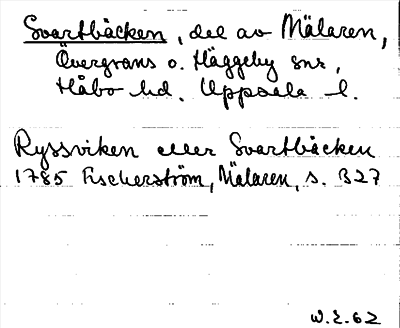 Svartbäcken, del av Mälaren,
Övergrans o. Häggeby snr,
Håbo hd. Uppsala l.
Ryssviken eller Svartbäcken
1785 Fischerström, Mälaren, s. 327
W.E.62